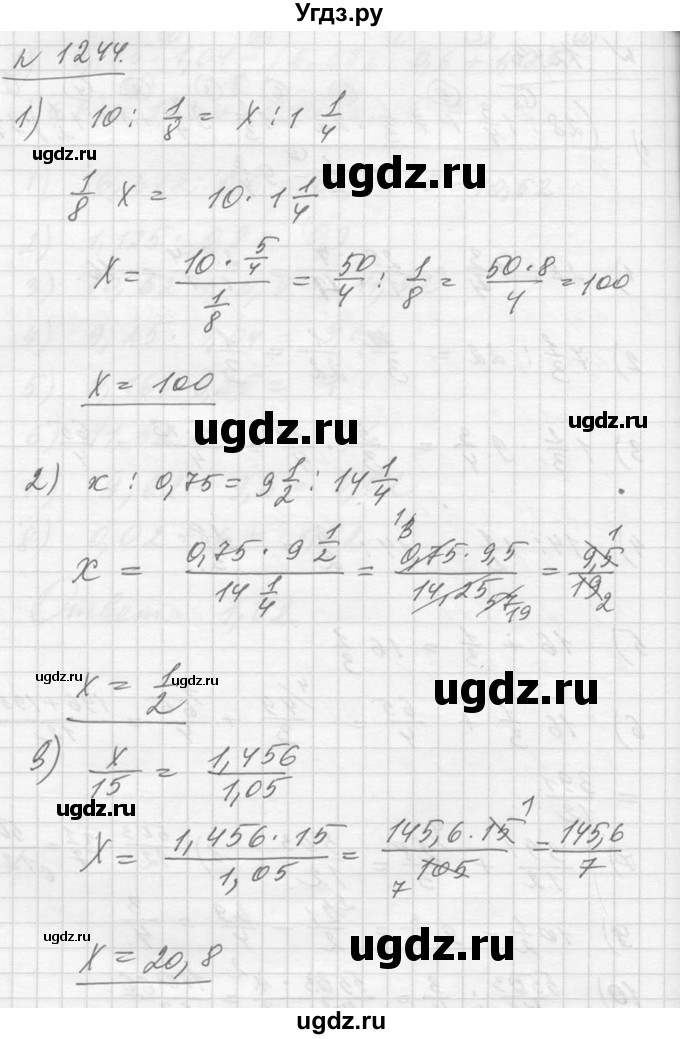 Угдз.ру
N 1244.
1) 10 : 1/8 = x : 1 1/4
ugdz.ru
ugdz.ru
1/8 x = 10 · 1 1/4
x = (10 · 5/4)/(1/8) = 50/4 : 1/8 = (50 · 8)/4 = 100
ugdz.ru
x = 100
ugdz.ru
ugdz.ru
2) x : 0,75 = 9 1/2 : 14 1/4
x = (0,75 · 9 1/2)/(14 1/4) = (0,75 · 9,5)/14,25 = 9,5/19
1 3 57 19 1 2
ugdz.ru
ugdz.ru
ugdz.ru
x = 1/2
3) x/15 = 1,456/1,05
ugdz.ru
x = (1,456 · 15)/1,05 = (145,6 · 15)/105 = 145,6/7
1 7
ugdz.ru
ugdz.ru
ugdz.ru
x = 20,8
ugdz.ru